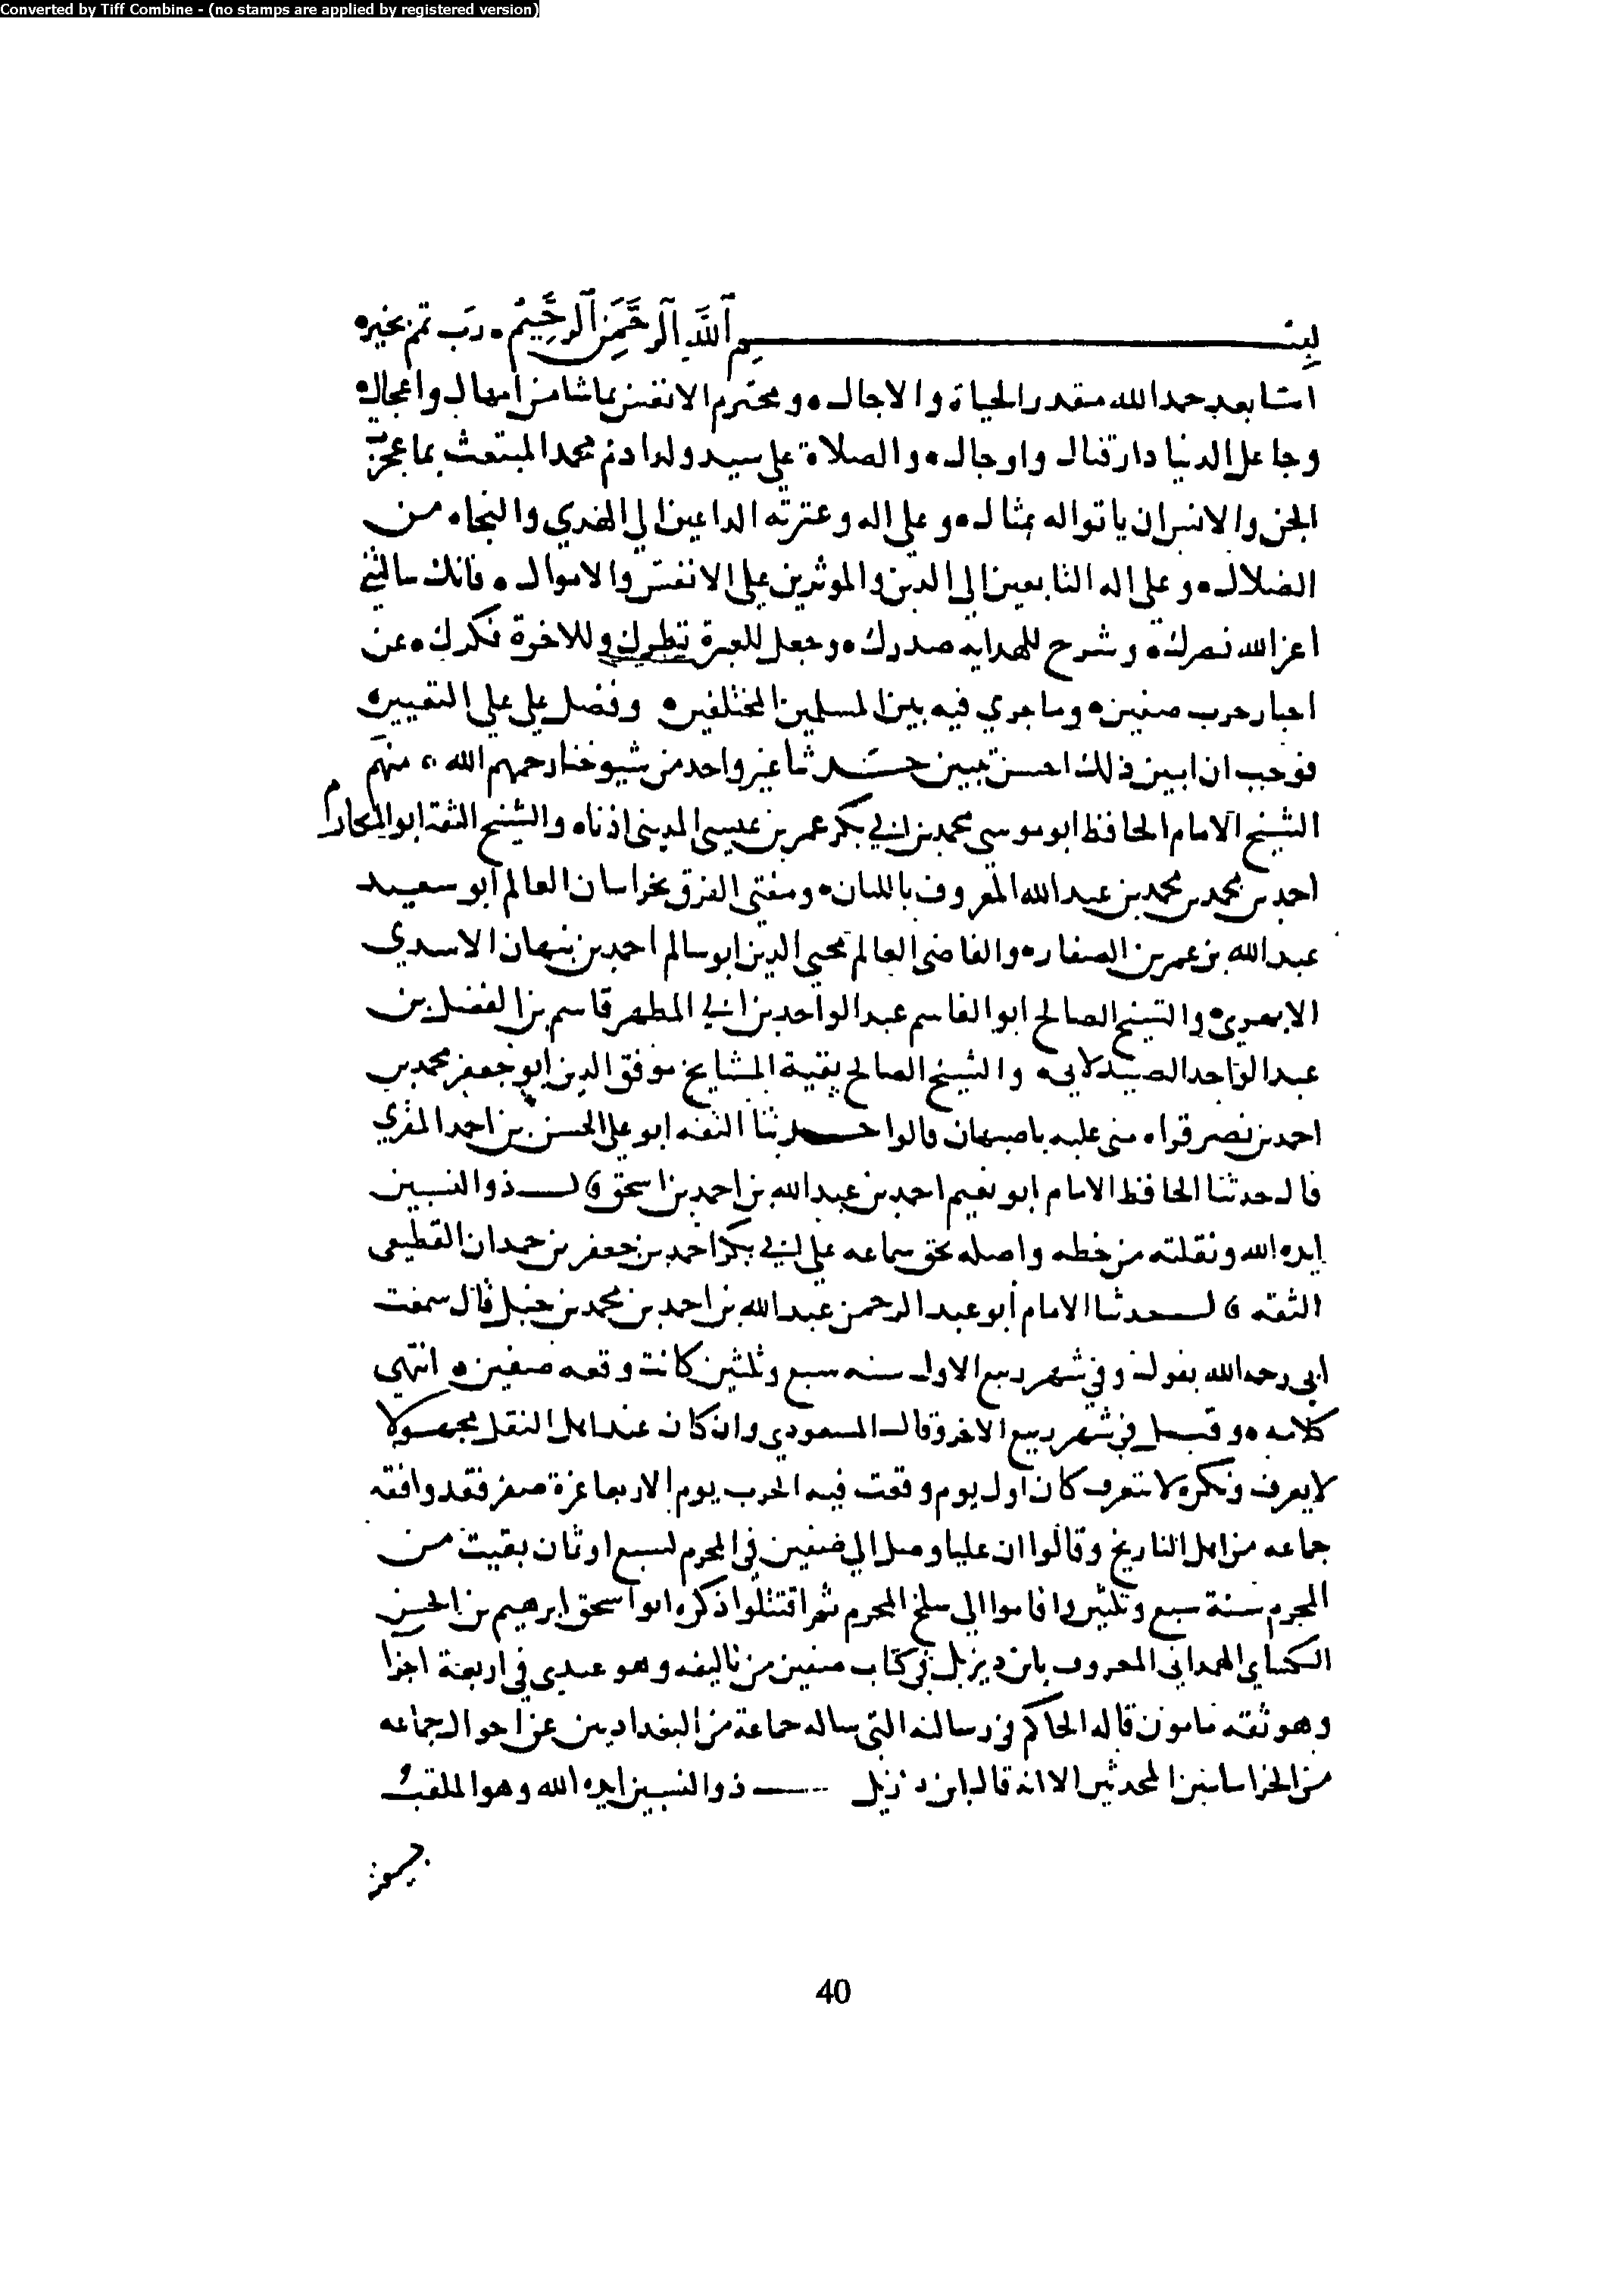 Converted by Tiff Combine - (no stamps are applied by registered version)
بسم الله الرحمن الرحيم ه رب تمم بخير ه
اما بعد حمد الله مقدر الحياة والاجال ه ومخترم الانفس بما شا من امهال واعجال ه
وجاعل الدنيا دار قتال واوجال ه والصلاة على سيد ولد ادم محمد المبتعث بما عجز
الجن والانس ان ياتوا له بمثال ه وعلى اله وعترته الداعين الى الهدي والنجاه من
الضلال ه وعلى اله التابعين الى الدين والموثرين على الانفس والاموال ه فانك سالتني
اعز الله نصرك ه وشرح للهدايه صدرك ه وجعل للعبرة نظرك وللاخرة فكرك ه عن
اخبار حرب صفين ه وما جري فيه بين المسلمين المختلفين ه وفضل علي على التعيين ه
فوجب ان ابين ذلك احسن تبيين حدثنا غير واحد من شيوخنا رحمهم الله ه منهم
الشيخ الامام الحافظ ابو موسى محمد بن ابي بكر عمر بن عيسى المديني اذناه والشيخ الثقة ابو المكارم
احمد بن محمد بن محمد بن عبد الله المعروف باللبان ه ومفتى الفرق بخراسان العالم ابو سعيد
عبد الله بن عمر بن الصفار ه والقاضى العالم محيي الدين ابو سالم احمد بن نبهان الاسدي
الابهري ه والشيخ الصالح ابو القاسم عبد الواحد بن ابي المطهر قاسم بن الفضل بن
عبد الواحد الصيدلاني ه والشيخ الصالح بقية المشايخ موفق الدين ابو جعفر محمد بن
احمد بن نصر قراه منى عليه باصبهان قالوا حدثنا الثقه ابو على الحسن بن احمد المقري
قال حدثنا الحافظ الامام ابو نعيم احمد بن عبد الله بن احمد بن اسحق ه قال ذو النسبين
ايده الله ونقلته من خطه واصله بحق سماعه على ابي بكر احمد بن جعفر بن حمدان القطيعى
الثقه قال حدثنا الامام أبو عبد الرحمن عبد الله بن احمد بن محمد بن حنبل قال سمعت
ابى رحمه الله يقول ه وفي شهر ربيع الاول سنه سبع وثلثين كانت وقعه صفين ه انتهى
كلامه ه وقيل في شهر ربيع الاخر وقال المسعودي وان كان عند اهل النقل مجهولا
لا يعرف ونكره لا تتعرف كان اول يوم وقعت فيه الحرب يوم الاربعا غرة صفر فقد وافقه
جماعه من اهل التاريخ وقالوا ان عليا وصل الي صفين في المحرم لسبع او ثمان بقيت من
المحرم سنة سبع وثلثين واقاموا الي سلخ المحرم ثم اقتتلوا ذكره ابو اسحق ابرهيم بن الحسين
الكساي الهمداني المعروف بابن ديزيل في كتاب صفين من تاليفه وهو عندي في اربعة اجزا
وهو ثقه مامون قاله الحاكم في رسالته التى ساله جماعة من البغداديين عن احوال جماعه
من الخراسانين المحدثين الا انه قال ابن ديزيل ذو النسبين ايده الله وهو الملقب
40